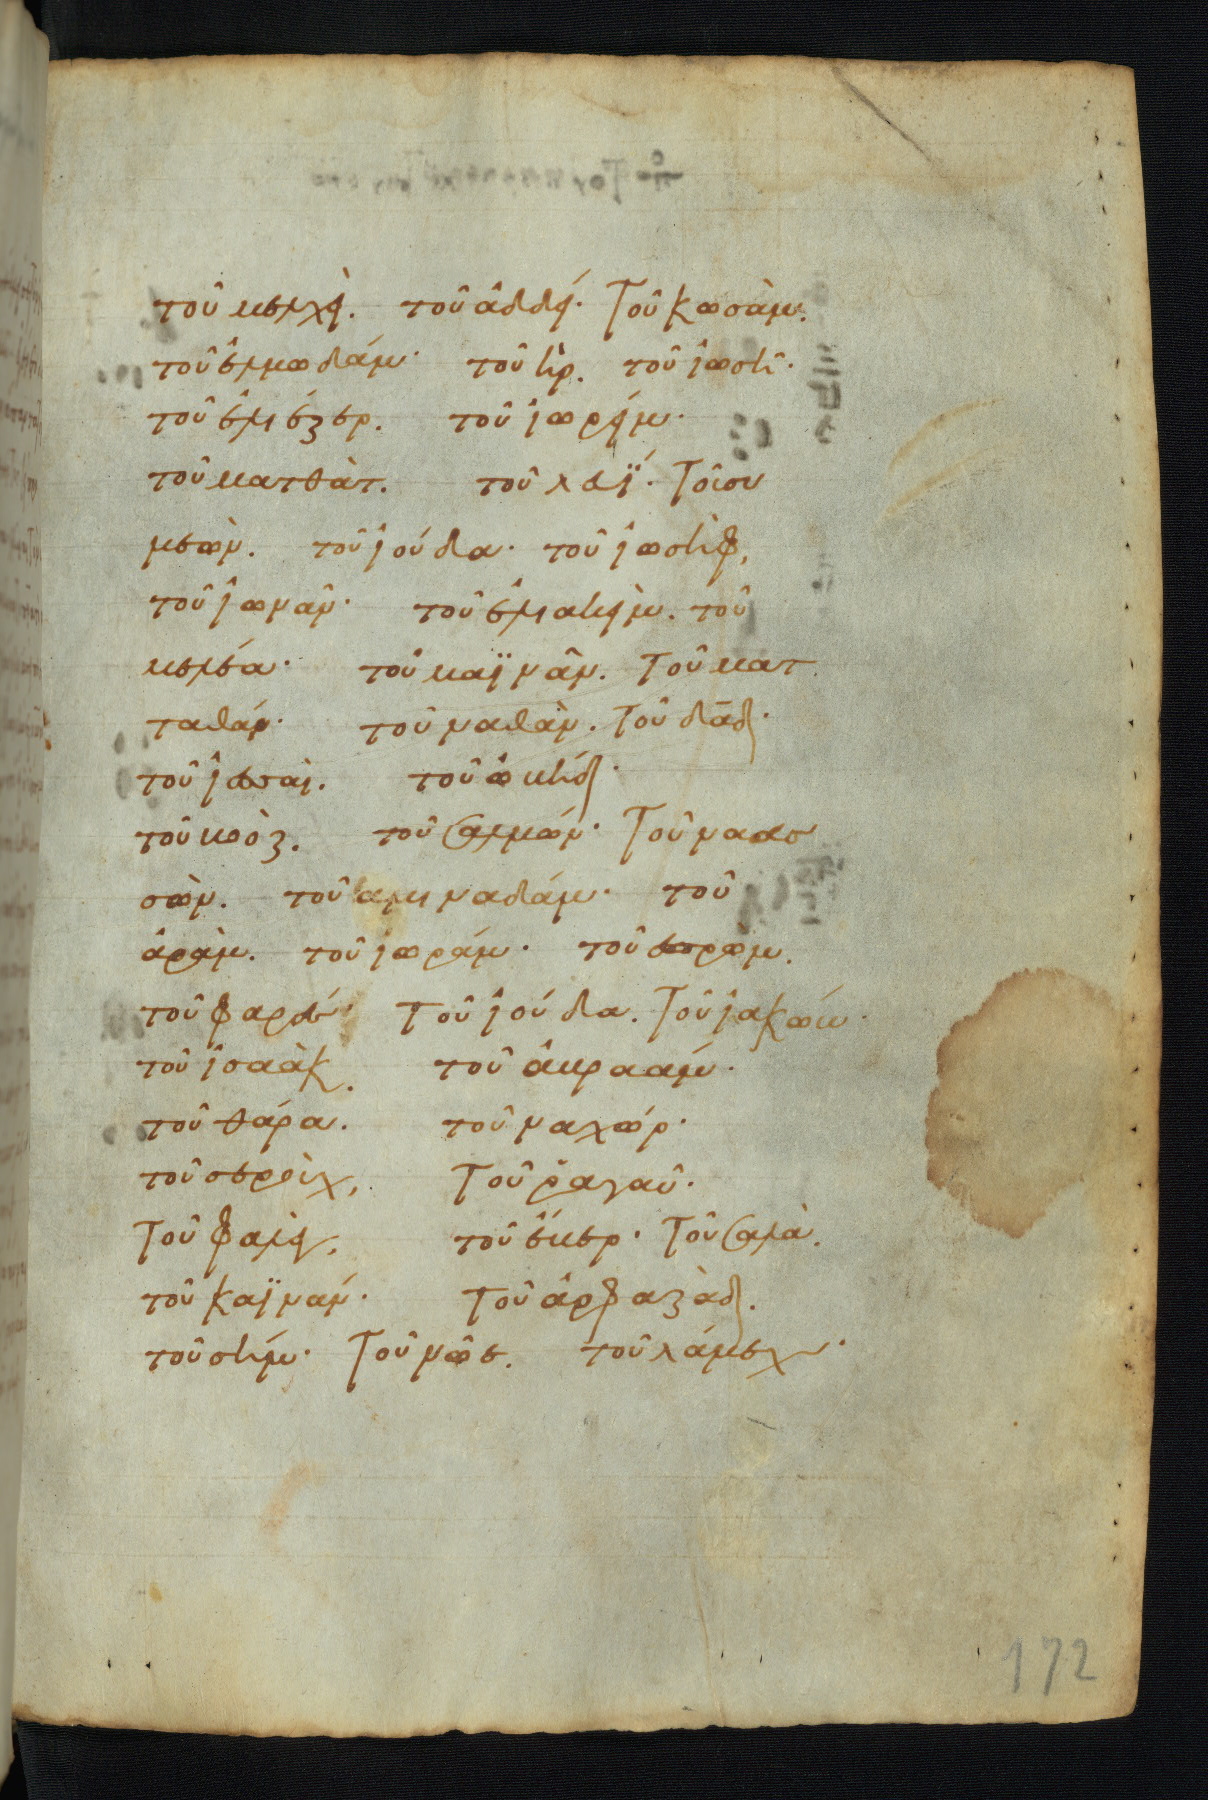 τοῦ μελχὶ. τοῦ ἀδδί· τοῦ κωσὰμ.
τοῦ ἐλμωδάμ· τοῦ ἢρ. τοῦ ἰωσῆ·
τοῦ ἐλιέζερ. τοῦ ἰωρίμ·
τοῦ ματθὰτ. τοῦ λευΐ· τοῦ συ
μεὼν. τοῦ ἰούδα· τοῦ ἰωσὴφ,
τοῦ ἰωνᾶν· τοῦ ἐλιακὶμ. τοῦ
μελεά· τοῦ μαϊνᾶν. τοῦ ματ
ταθάν· τοῦ ναθὰν. τοῦ δᾱδ·
τοῦ ἰεσαὶ. τοῦ ὠβήδ·
τοῦ βοὸζ. τοῦ σαλμών· τοῦ ναασ
σὼν. τοῦ αμιναδάμ· τοῦ
ἀρὰμ. τοῦ ἰωράμ· τοῦ εσρωμ.
τοῦ φαρές· τοῦ ἰούδα. τοῦ ἰακώβ·
τοῦ ἰσαὰκ. τοῦ ἀβρααάμ·
τοῦ θάρα. τοῦ ναχώρ·
τοῦ σεροὺχ, τοῦ ῥαγαῦ·
τοῦ φαλὲγ. τοῦ ἔβερ· τοῦ σαλὰ.
τοῦ καϊνάν· τοῦ ἀρφαξὰδ.
τοῦ σήμ· τοῦ νῶε. τοῦ λάμεχ·
172